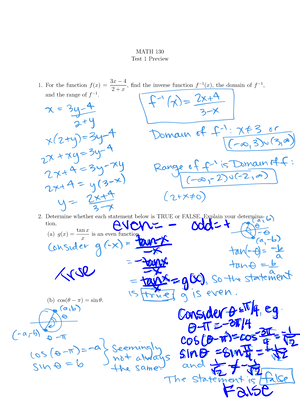 MATH 130
Test 1 Preview
1. For the function f(x) = (3x − 4)/(2 + x), find the inverse function f⁻¹(x), the domain of f⁻¹,
and the range of f⁻¹.
x = (3y-4)/(2+y)
f⁻¹(x) = (2x+4)/(3-x)
x(2+y) = 3y-4
2x + xy = 3y-4
2x+4 = 3y-xy
2x+4 = y(3-x)
y = (2x+4)/(3-x)
Domain of f⁻¹: x≠3 or
(-∞,3)∪(3,∞)
Range of f⁻¹ is Domain of f:
(-∞,-2)∪(-2,∞)
(2+x≠0)
2. Determine whether each statement below is TRUE or FALSE. Explain your determination.
(a) g(x) = tan x / x is an even function.
even = - odd = +
Consider g(-x) = tan(-x)/-x
= -tan x/-x
= tan x/x = g(x), so the statement
is true, g is even.
True
(a,b)
θ
-θ
(a,-b)
tan(-θ) = -b/a
tan θ = b/a
(b) cos(θ − π) = sin θ.
(a,b)
(-a,-b)
cos(θ-π) = -a
sin θ = b
seemingly
not always
the same
Consider θ = π/4, eg
θ-π = -3π/4
cos(θ-π) = cos -3π/4 = -1/√2
sin θ = sin π/4 = 1/√2
and 1/√2 ≠ -1/√2
The statement is false
False